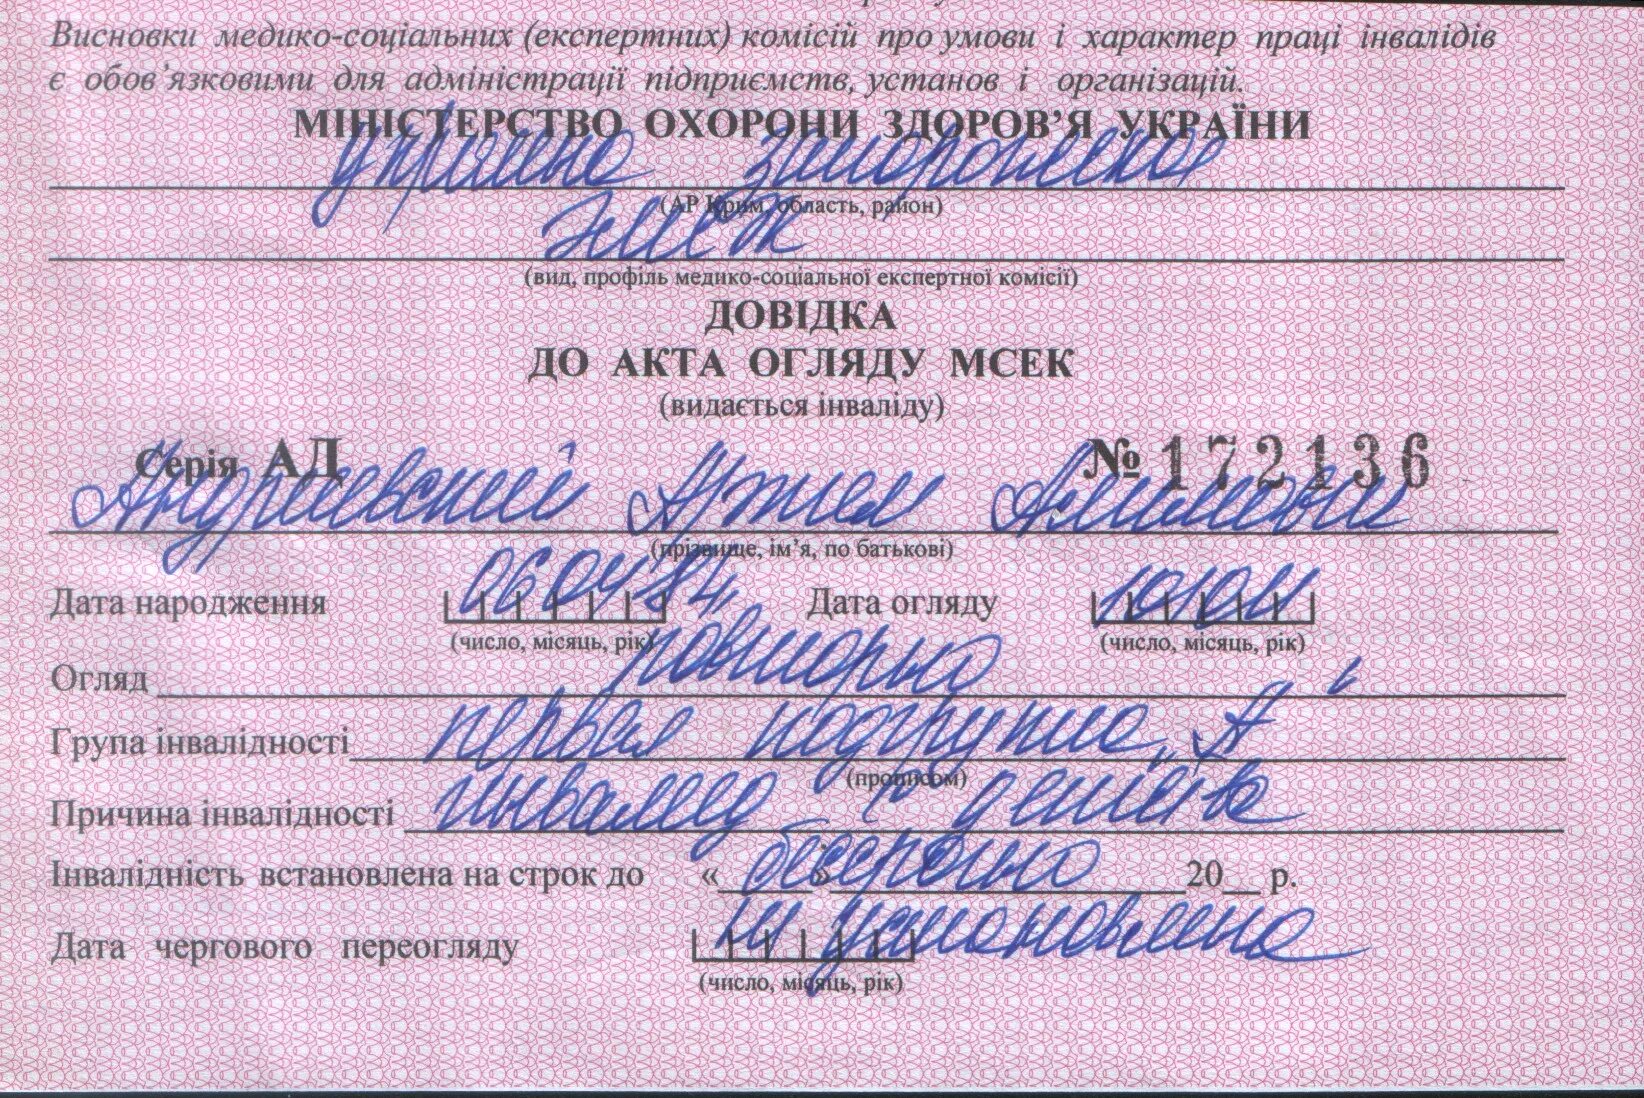 Висновки медико-соціальних (експертних) комісій про умови і характер праці інвалідів
є обов’язковими для адміністрації підприємств, установ і організацій.
МІНІСТЕРСТВО ОХОРОНИ ЗДОРОВ’Я УКРАЇНИ
(АР Крим, область, район)
(вид, профіль медико-соціальної експертної комісії)
ДОВІДКА
ДО АКТА ОГЛЯДУ МСЕК
(видається інваліду)
Серія АД № 172136
Андриевский Артем
(прізвище, ім’я, по батькові)
Дата народження 060484 Дата огляду
(число, місяць, рік) (число, місяць, рік)
Огляд повторно
Група інвалідності первая подгруппа „А“
(прописом)
Причина інвалідності инвалид с детства
Інвалідність встановлена на строк до « » бессрочно 20 р.
Дата чергового переогляду установлена
(число, місяць, рік)